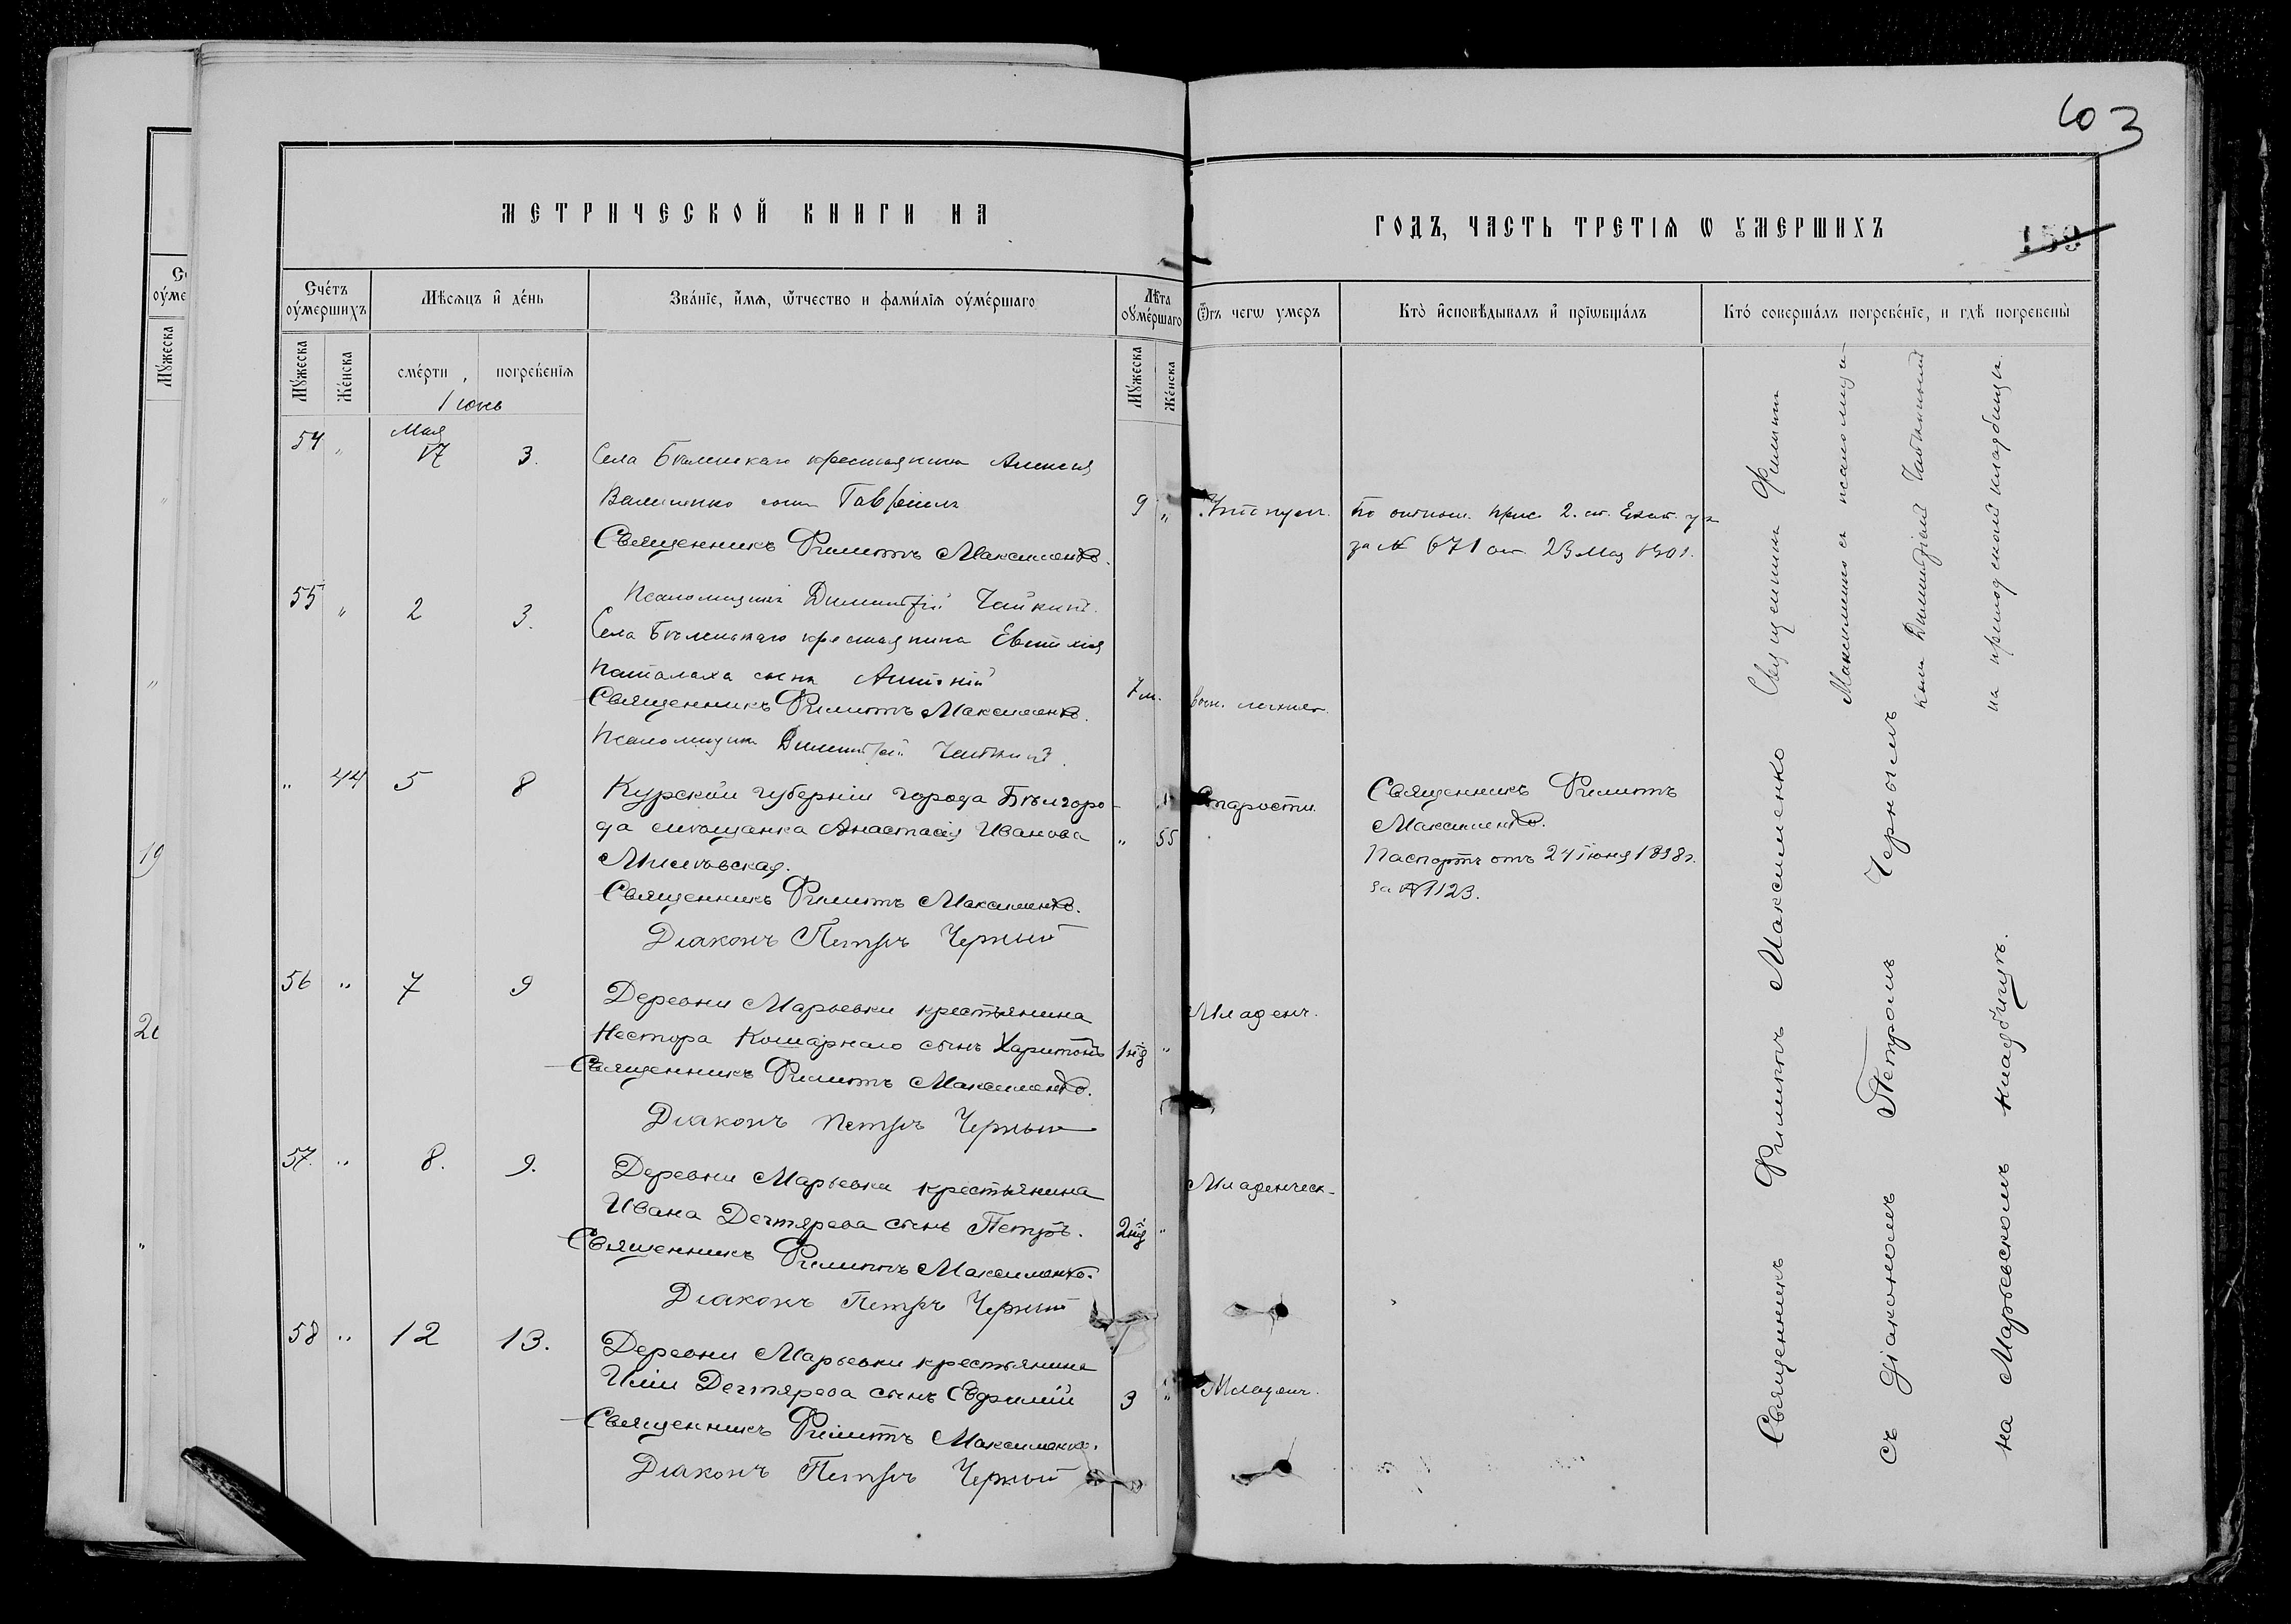 603
МЕТРИЧЕСКОЙ КНИГИ НА
ГОДЪ, ЧАСТЬ ТРЕТІѦ Ѡ УМЕРШИХЪ
159
Счетъ оумершихъ
Мѣсяцъ и день
Званіе, имя, отчество и фамилія оумершаго
Лѣта оумершаго
Отъ чегѡ умеръ
Кто исповѣдывалъ и пріѡбщалъ
Кто совершалъ погребеніе, и гдѣ погребены
Мужеска
Женска
смерти
погребенія
Мужеска
Женска
Іюнь
54 " Мая 17 3. Села крестьянина Алексѣя
сынъ Гавріилъ 9 "
По отнош. 2. ст. Екат. у.
за № 671 от 23 Мая 1901.
Священникъ Филиппъ Максименко.
Псаломщикъ Димитрій Чайкинъ.
55 " 2 3. Села крестьянина Евтихія
сынъ Антоній 7 м. Восп. легких.
Священникъ Филиппъ Максименко.
Псаломщикъ Димитрій Чайкинъ.
" 44 5 8 Курской губерніи города Бѣлгоро-
да мѣщанка Анастасія Иванова " 55 Старости.
Священникъ Филиппъ
Максименко.
Паспортъ отъ 24 іюня 1898 г.
за № 1123.
Священникъ Филиппъ Максименко.
Діаконъ Петръ Черный
56 " 7 9 Деревни Марьевки крестьянина
Нестора Кошарнаго сынъ Харитонъ 1 нд " Младенч.
Священникъ Филиппъ Максименко.
Діаконъ Петръ Черный
57. " 8. 9. Деревни Марьевки крестьянина
Ивана Дегтярева сынъ Петръ. 2 нд " Младенческ-
Священникъ Филиппъ Максименко.
Діаконъ Петръ Черный
58 " 12 13. Деревни Марьевки крестьянина
Иліи Дегтярева сынъ Евфимій 3 " Младенч.
Священникъ Филиппъ Максименко.
Діаконъ Петръ Черный
Священникъ Филиппъ
Максименко съ псаломщи-
комъ Димитріемъ Чайкинымъ
на приходскомъ кладбищѣ.
Священникъ Филиппъ Максименко
съ діакономъ Петромъ Чернымъ
на Марьевскомъ кладбищѣ.
19